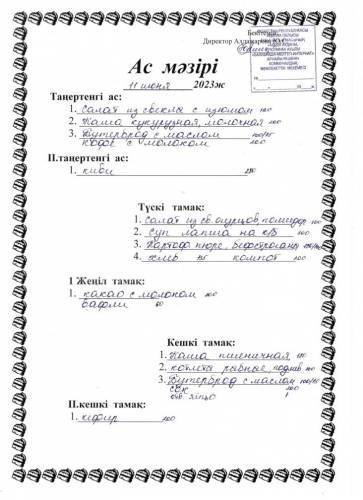 Бекітемін
Директор
Ас мәзірі
11 июня 2023ж
Таңертеңгі ас:
1. Салат из свеклы с изюмом 100
2. Каша кукурузная, молочная
3. Бутерброд с маслом
Кофе с молоком
II.таңертеңгі ас:
1. киви
Түскі тамақ:
1. Салат из св. огурцов, помидор 100
2. Суп лапша на к/б
3. Картоф. пюре, бефстроганы
4. хлеб компот
1 Жеңіл тамақ:
1. какао с молоком
вафли
Кешкі тамақ:
1. Каша пшеничная
2. котлеты рыбные, подлив
3. Бутерброд с маслом
сок
яйцо
II.кешкі тамақ:
1. кефир